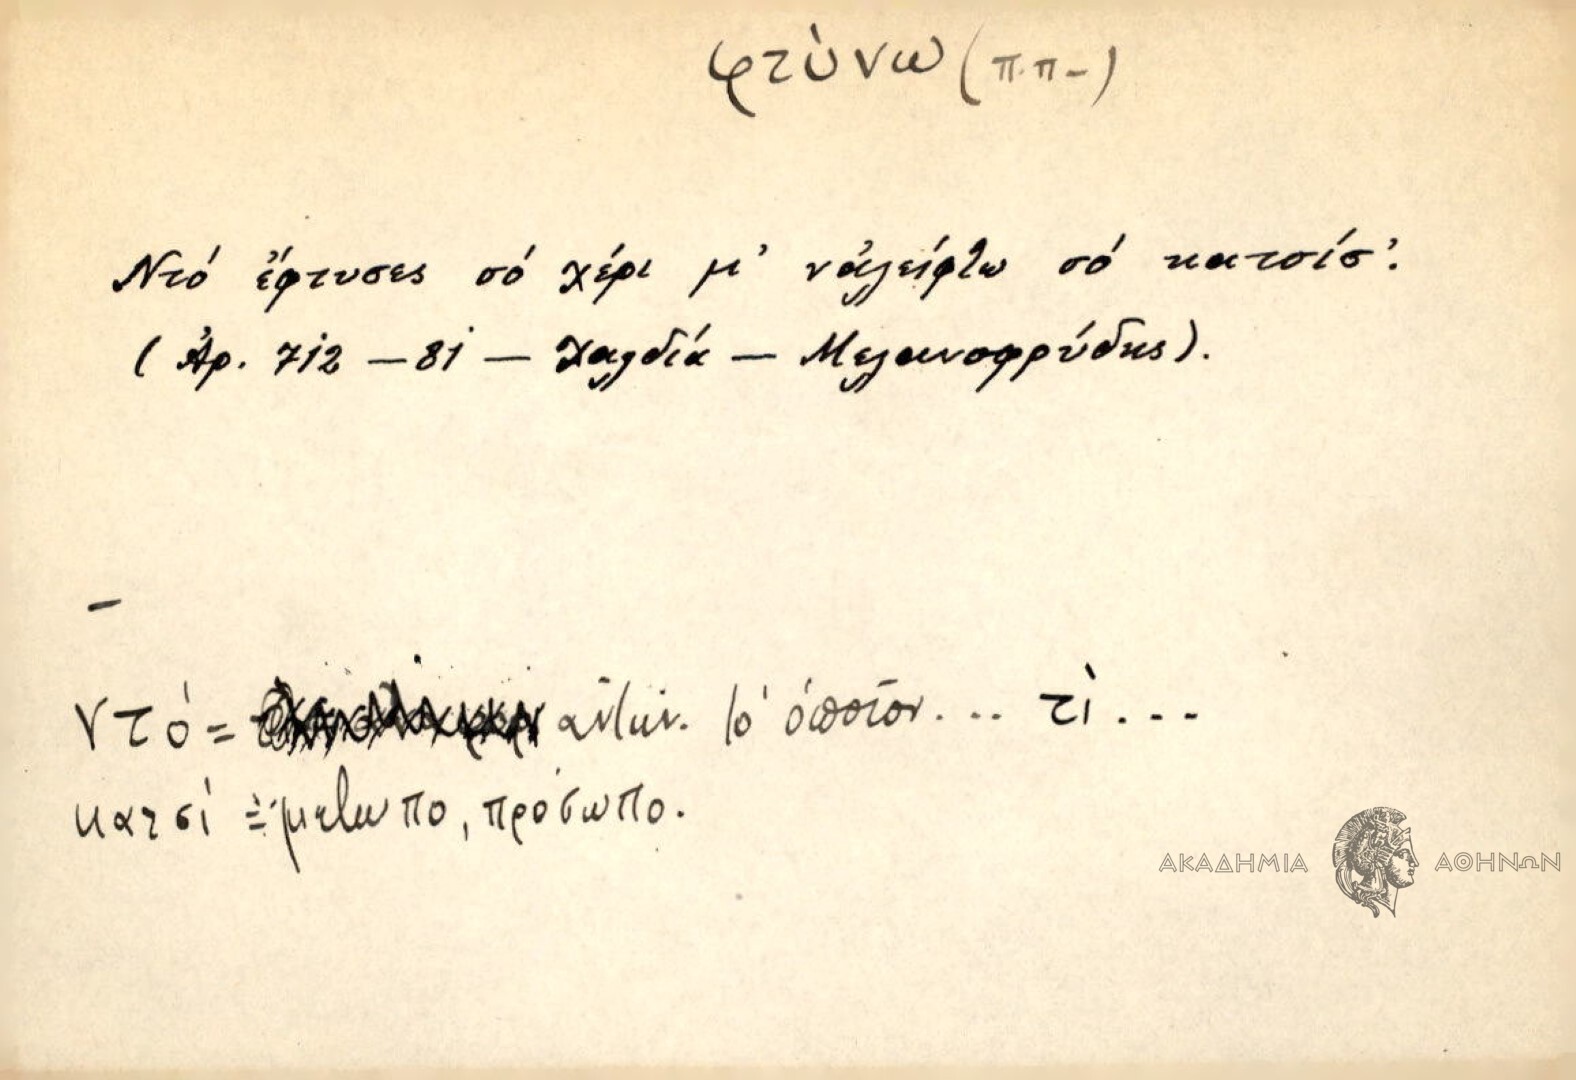 φτύνω (π.π-)
Ντό έφτυσες σό χέρι μ' ν' ἀλείφτω σό κατσίσ'.
(Ἀρ. 712 – 81 – Χαλδία – Μελανοφρύδης).
–
ντό = ἀντων. τὸ ὁποῖον... τὶ...
κατσί = μέτωπο, πρόσωπο.
ΑΚΑΔΗΜΙΑ ΑΘΗΝΩΝ